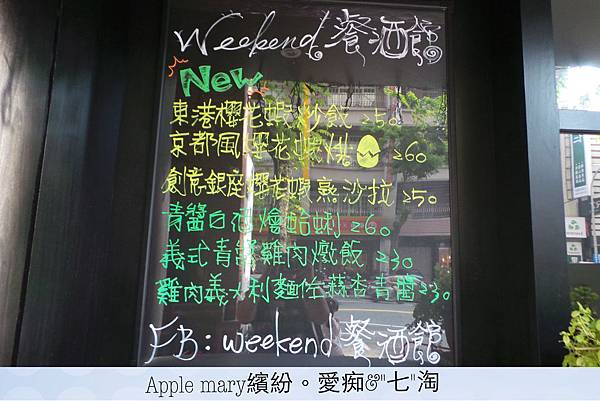 Weekend 餐酒館
New
東港櫻花蝦炒飯 250
京都風櫻花蝦烤 260
創意銀座櫻花蝦熟沙拉 250
青醬白酒燴蛤蜊 260
義式青醬雞肉燉飯 230
雞肉義大利麵佐蒜杏青醬 230
FB: weekend 餐酒館
Apple mary繽紛。愛痴&"七"淘